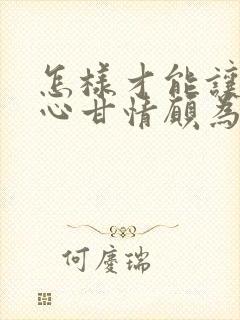 怎樣才能讓
心甘情願為
何慶瑞